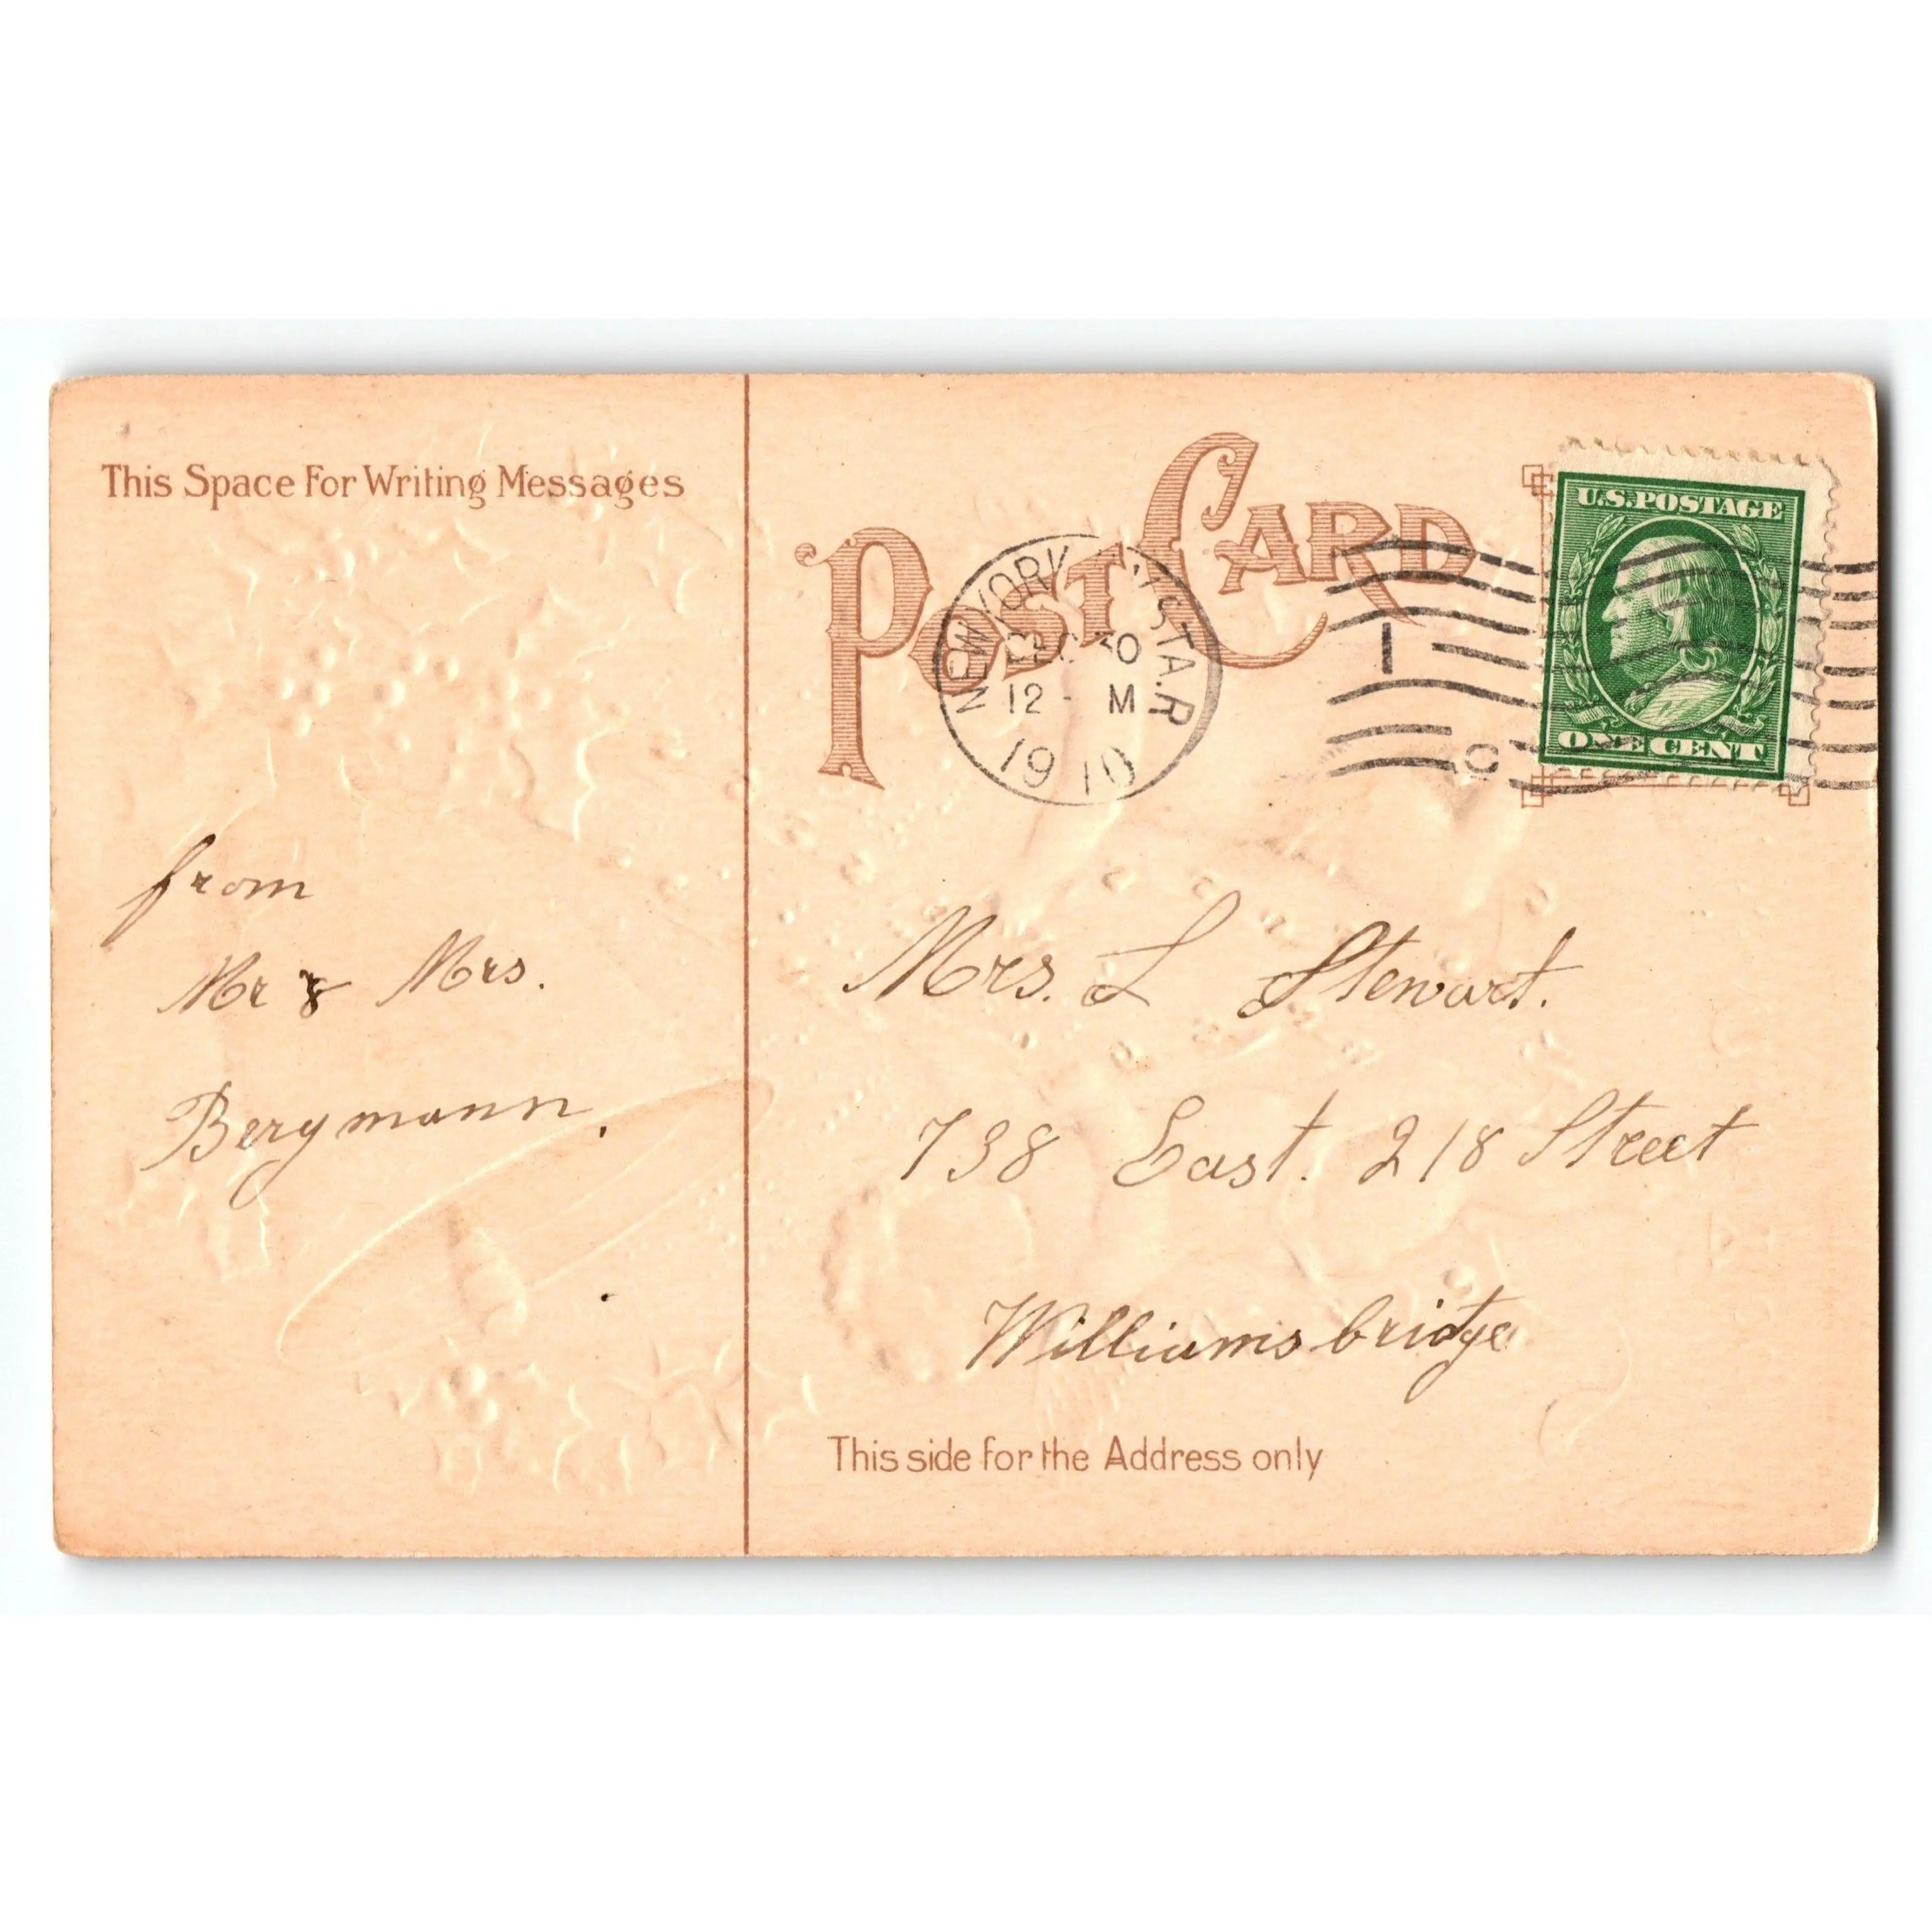 This Space For Writing Messages
POST CARD
U.S. POSTAGE
ONE CENT
NEW YORK STA. R
DEC 30
12 - M
1910
from
Mr & Mrs.
Bergmann.
Mrs. L Stewart.
738 East. 218 Street
Williamsbridge
This side for the Address only